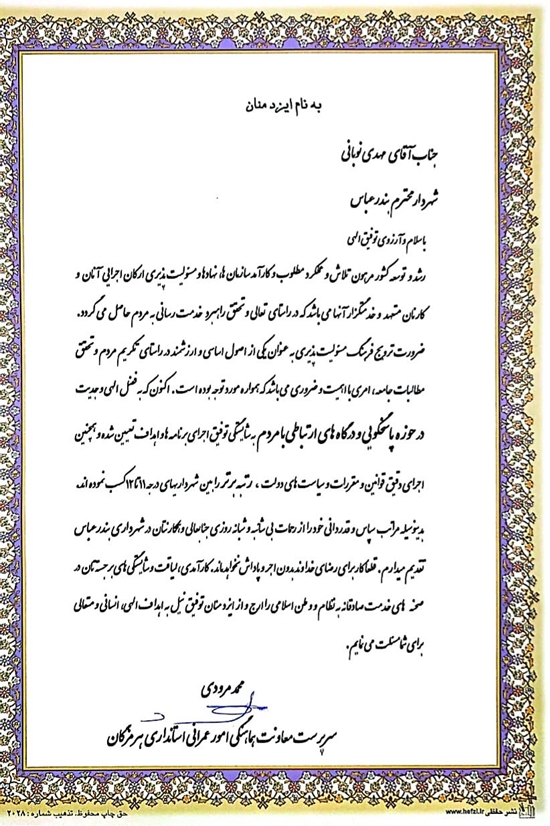 به نام ایزد منان
جناب آقای مهدی نوبانی
شهردار محترم بندرعباس
باسلام و آرزوی توفیق الهی
رشد و توسعه کشور مرهون تلاش و عملکرد مطلوب و کارآمد سازمان ها، نهادها و مسئولیت پذیری ارکان اجرایی آنان و
کارکنان متعهد و خدمتگزار آنها می باشد که در راستای تعالی و تحقق راهبرد خدمت رسانی به مردم حاصل می گردد.
ضرورت ترویج فرهنگ مسئولیت پذیری به عنوان یکی از اصول اساسی و ارزشمند در راستای تکریم مردم و تحقق
مطالبات جامعه، امری با اهمیت و ضروری می باشد که همواره مورد توجه بوده است. اکنون که به فضل الهی و جدیت
در حوزه پاسخگویی و درگاه های ارتباطی با مردم به شایستگی توفیق اجرای برنامه ها و اهداف تعیین شده و همچنین
اجرای دقیق قوانین و مقررات و سیاست های دولت ، رتبه برتر را بین شهرداریهای درجه ۱۱ تا ۱۲ کسب نموده اند.
بدینوسیله مراتب سپاس و قدردانی خود را از زحمات بی شائبه و شبانه روزی جنابعالی و همکارانتان در شهرداری بندرعباس
تقدیم میدارم. قطعا کار برای رضای خداوند بدون اجر و پاداش نخواهد ماند. کارآمدی، لیاقت و شایستگی های برجسته تان در
صحنه های خدمت صادقانه به نظام و وطن اسلامی را ارج و از ایزد منان توفیق نیل به اهداف الهی، انسانی و متعالی
برای شما مسئلت می نمایم.
محمد مرودی
سرپرست معاونت هماهنگی امور عمرانی استانداری هرمزگان
نشر حفظی www.hefzi.ir
حق چاپ محفوظ. تذهیب شماره : ۲۰۲۸